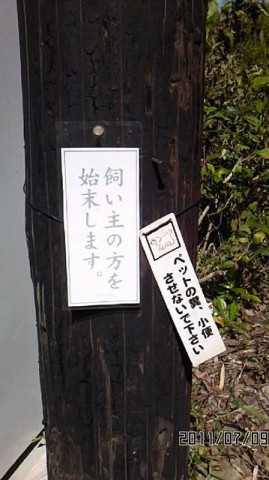 飼い主の方を
始末します。
ペットの糞、小便
させないで下さい
2011/07/09